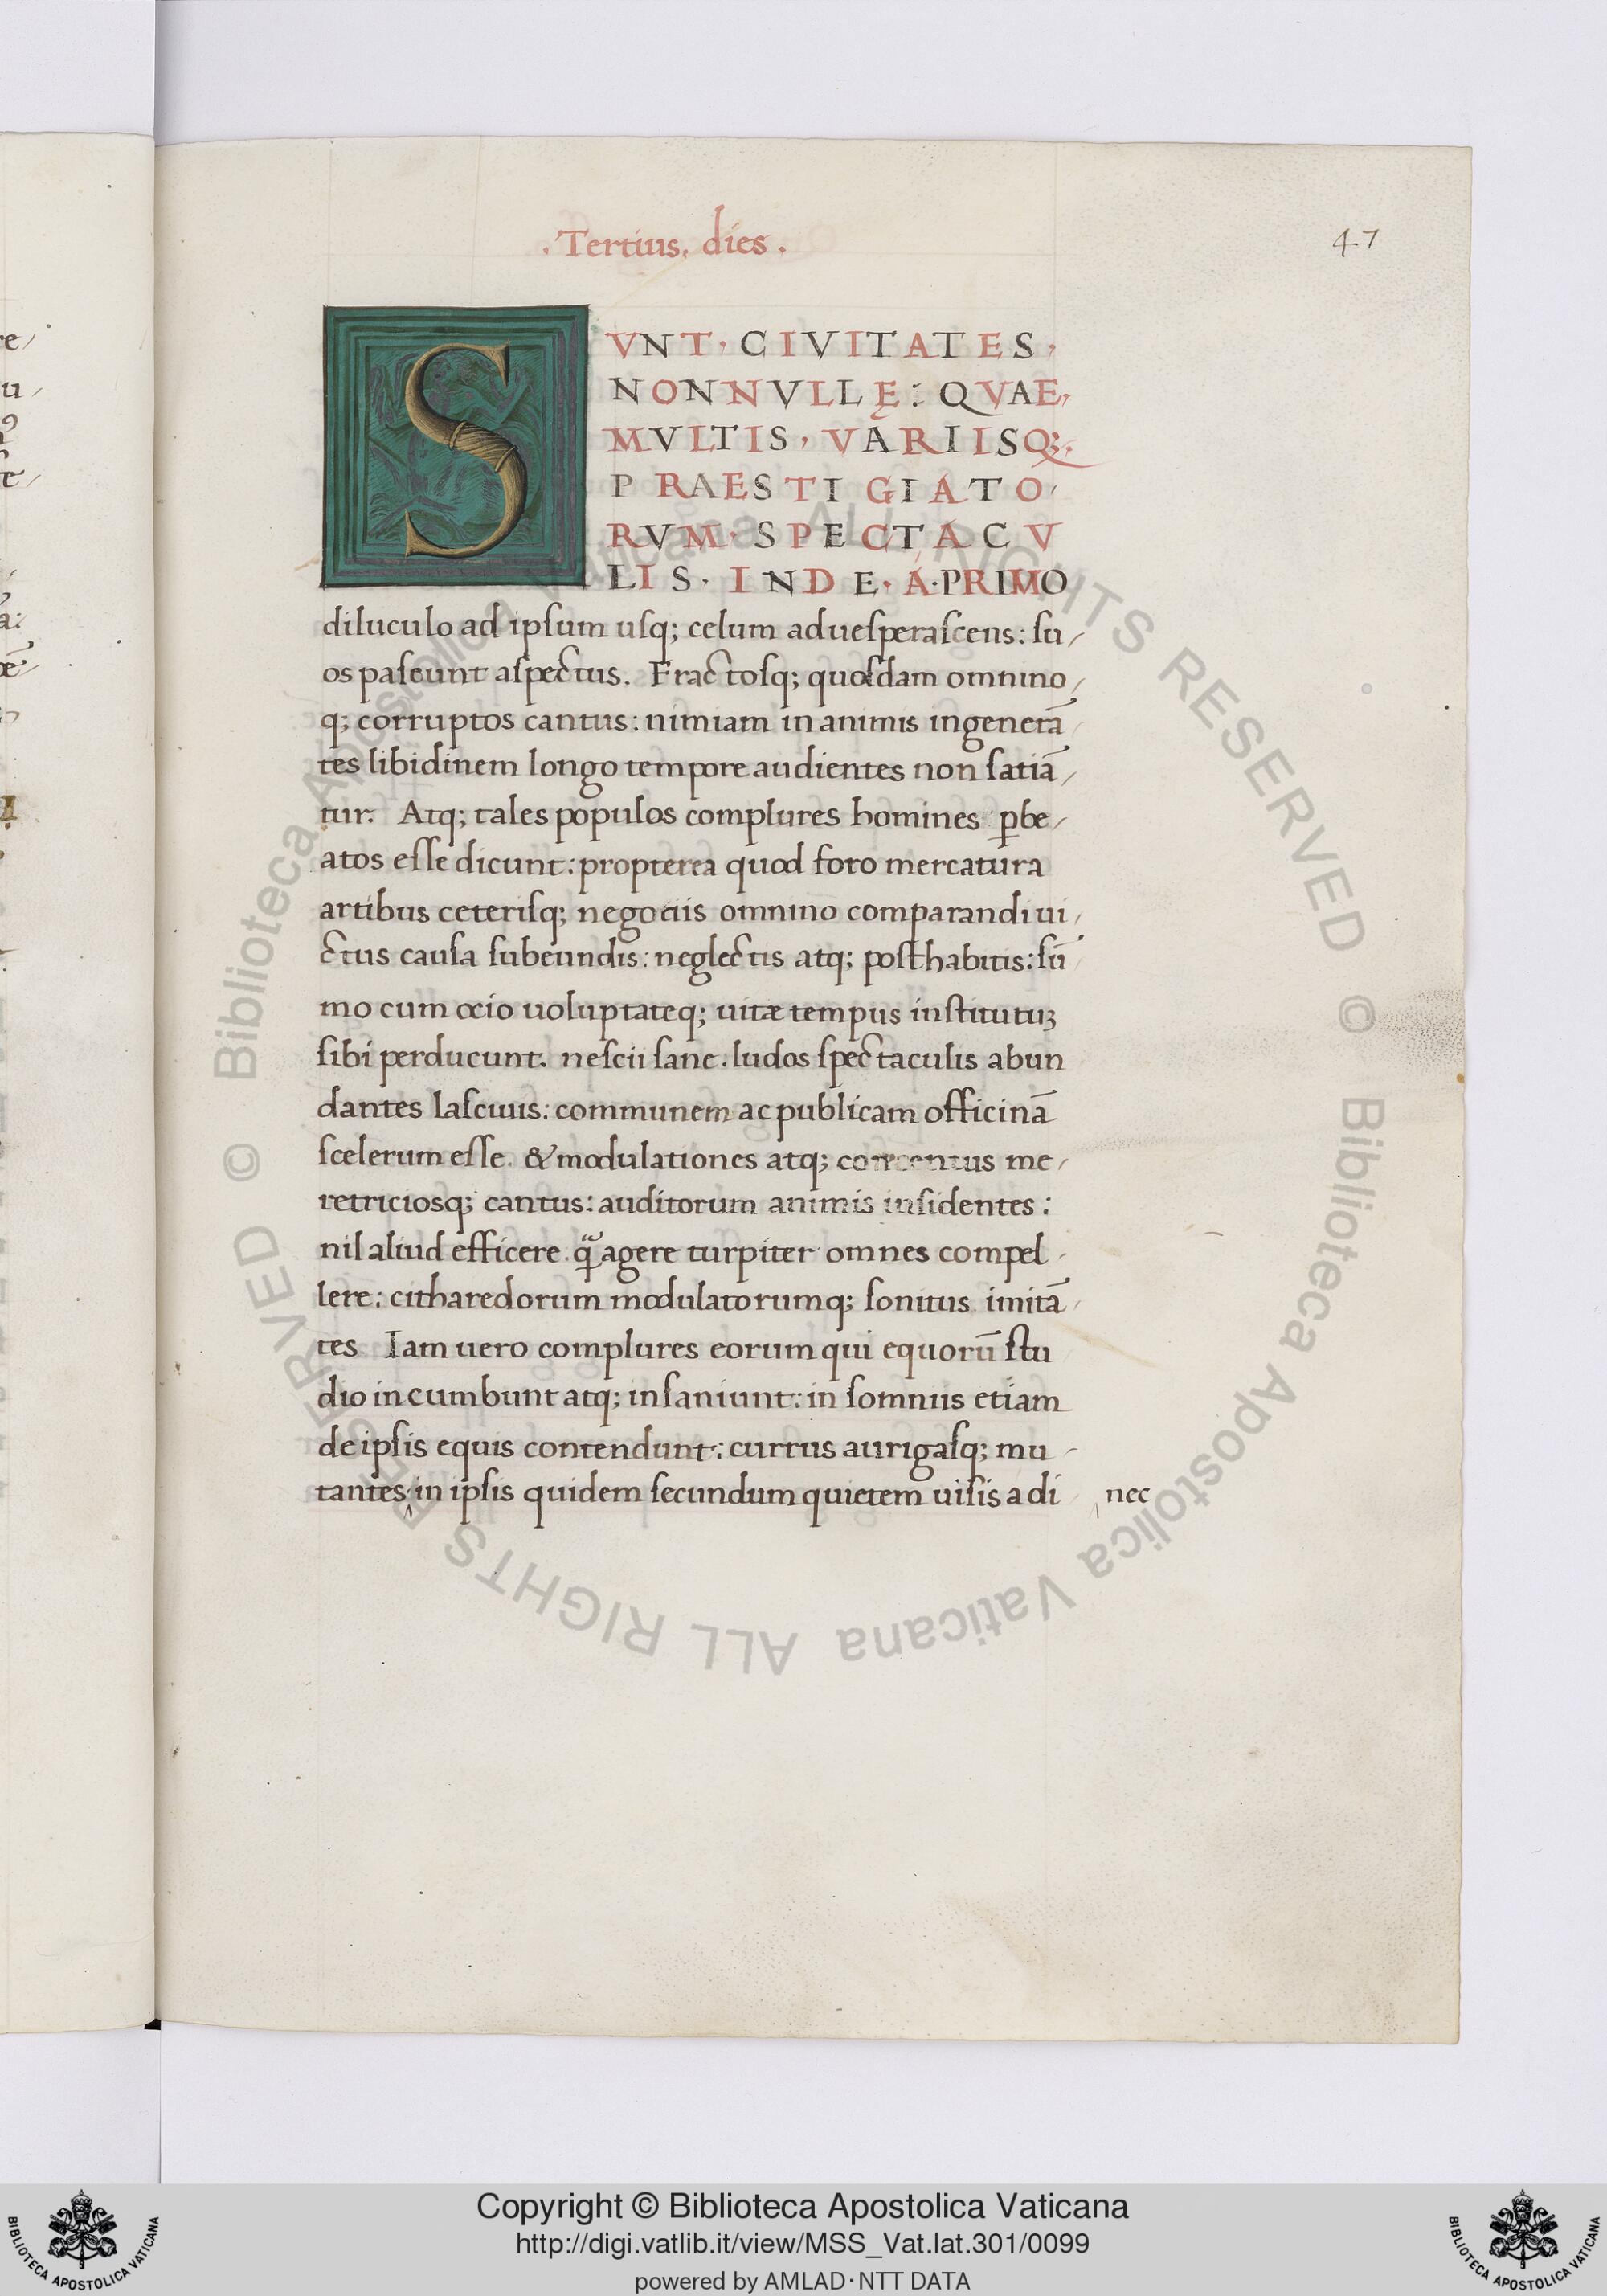 . Tertius. dies .
47
SVNT · CIVITATES ·
NONNVLLĘ : QVAE,
MVLTIS , VARIISQ;.
PRAESTIGIATO
RVM · SPECTACV
LIS · INDE · A · PRIMO
diluculo ad ipsum usq; celum aduesperascens: su/
os pascunt aspectus. Fractosq; quosdam omnino/
q; corruptos cantus: nimiam in animis ingenerā/
tes libidinem longo tempore audientes non satiā/
tur. Atq; tales populos complures homines ꝑbe/
atos esse dicunt: propterea quod foro mercatura
artibus ceterisq; negociis omnino comparandi ui/
ctus causa subeundis: neglectis atq; posthabitis: sū/
mo cum ocio uoluptateq; uitæ tempus institutuꝫ
sibi perducunt. nescii sane. ludos spectaculis abun
dantes lasciuis: communem ac publicam officinā
scelerum esse. & modulationes atq; concentus me/
retriciosq; cantus: auditorum animis insidentes:
nil aliud efficere. q̃ agere turpiter omnes compel/
lere: citharedorum modulatorumq; sonitus imitā/
tes Iam uero complures eorum qui equorū stu
dio incumbunt atq; insaniunt: in somniis etiam
de ipsis equis contendunt: currus aurigasq; mu/
tantes: in ipsis quidem secundum quietem uisis a di/ nec
© Biblioteca Apostolica Vaticana ALL RIGHTS RESERVED © Biblioteca Apostolica Vaticana ALL RIGHTS RESERVED
Copyright © Biblioteca Apostolica Vaticana
http://digi.vatlib.it/view/MSS_Vat.lat.301/0099
powered by AMLAD·NTT DATA
BIBLIOTECA APOSTOLICA VATICANA
BIBLIOTECA APOSTOLICA VATICANA